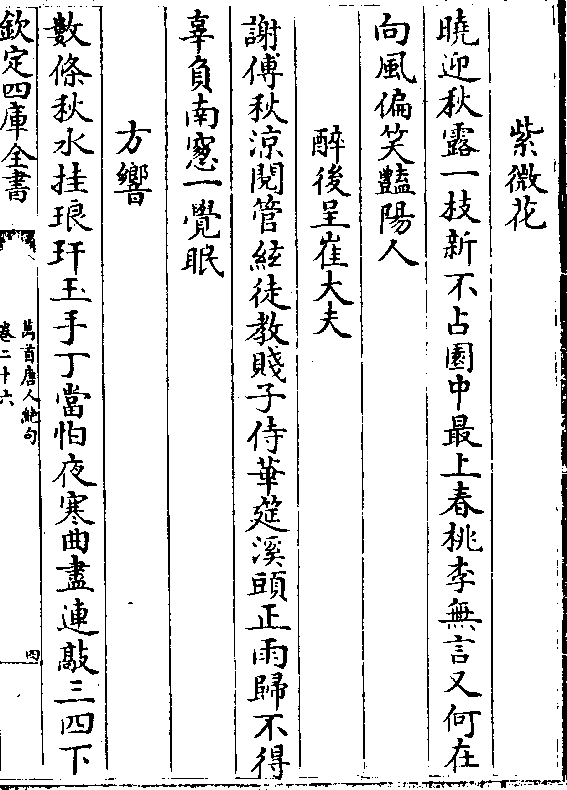 紫微花
曉迎秋露一枝新不占園中最上春桃李無言又何在
向風偏笑豔陽人
醉後呈崔大夫
謝傅秋涼閱管絃徒教賤子侍華筵溪頭正雨歸不得
辜負南窻一覺眠
方響
數條秋水挂琅玕玉手丁當怕夜寒曲盡連敲三四下
欽定四庫全書
萬首唐人絶句
卷二十六
四